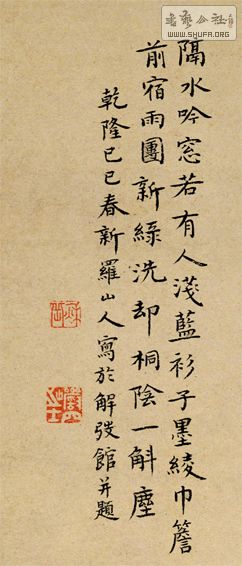 隔水吟窓若有人淺藍衫子墨綾巾簷
前宿雨團新綠洗却桐陰一斛塵
乾隆己巳春新羅山人寫於解弢館并題
書藝公社
WWW.SHUFA.ORG